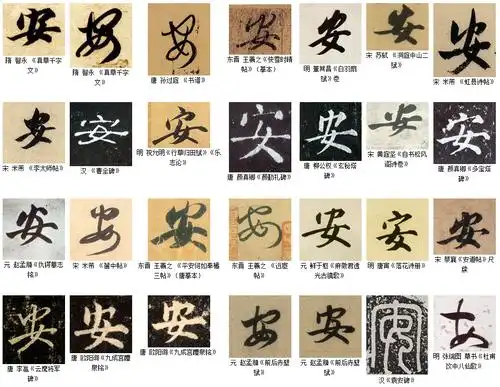 安 安 安 安 安 安 安
隋 智永 《真草千字文》
隋 智永 《真草千字文》
唐 孙过庭 《书谱》
东晋 王羲之《快雪时晴帖》(摹本)
明 董其昌《白羽扇赋》卷
宋 苏轼 《洞庭中山二赋》
宋 米芾《虹县诗帖》
安 安 安 安 安 安 安
宋 米芾 《李太师帖》
汉 《曹全碑》
明 祝允明《行草归田赋》《乐志论》
唐 颜真卿《颜勤礼碑》
唐 柳公权《玄秘塔碑》
宋 黄庭坚《自书松风阁诗卷》
唐 颜真卿《多宝塔碑》
安 安 安 安 安 安 安
元 赵孟頫《仇锷墓志铭》
宋 米芾 《箧中帖》
东晋 王羲之 《平安何如奉橘三帖》(唐摹本)
东晋 王羲之 《远宦帖》
元 鲜于枢《麻徵君透光古镜歌》
明 唐寅《落花诗册》
宋 蔡襄《安道帖》尺牍
安 安 安 安 安 安 安
唐 李邕《云麾将军碑》
唐 欧阳询《九成宫醴泉铭》
唐 欧阳询《九成宫醴泉铭》
元 赵孟頫《前后赤壁赋》
元 赵孟頫《前后赤壁赋》
汉《袁安碑》
明 张瑞图 草书《杜甫饮中八仙歌》